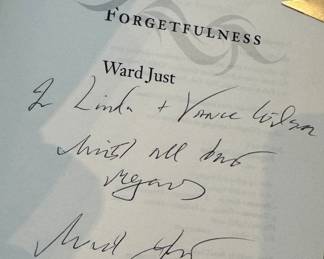 FORGETFULNESS
Ward Just
To Linda + Vance Wilson
with all best
regards
Ward Just